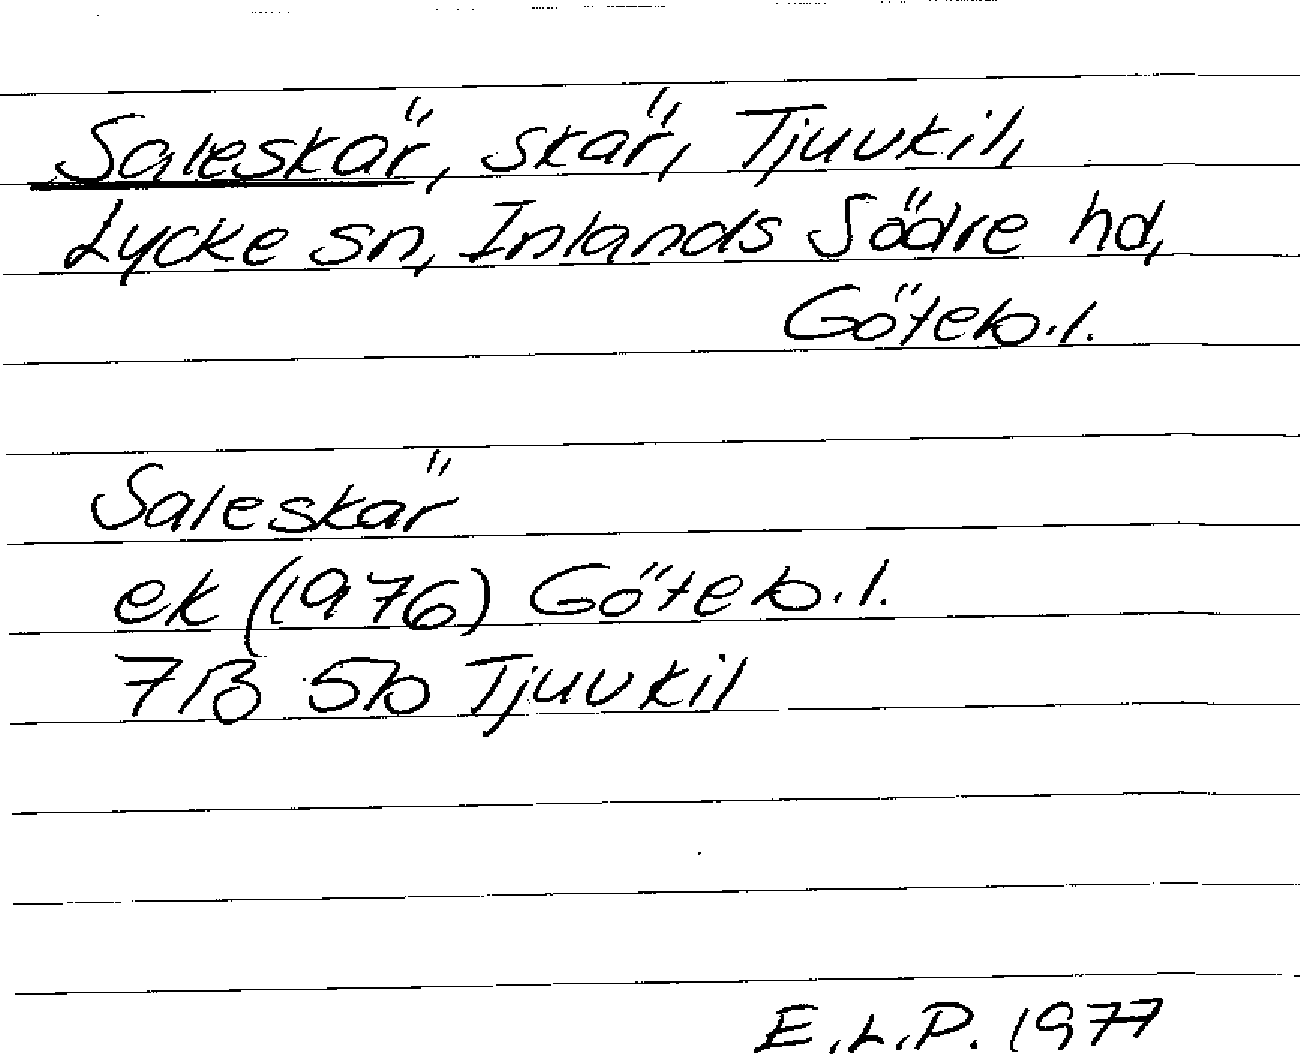 Saleskär, skär, Tjuvkil,
Lycke sn, Inlands Södre hd,
Göteb.l.
Saleskär
ek (1976) Göteb.l.
7B 5b Tjuvkil
E.L.P. 1977